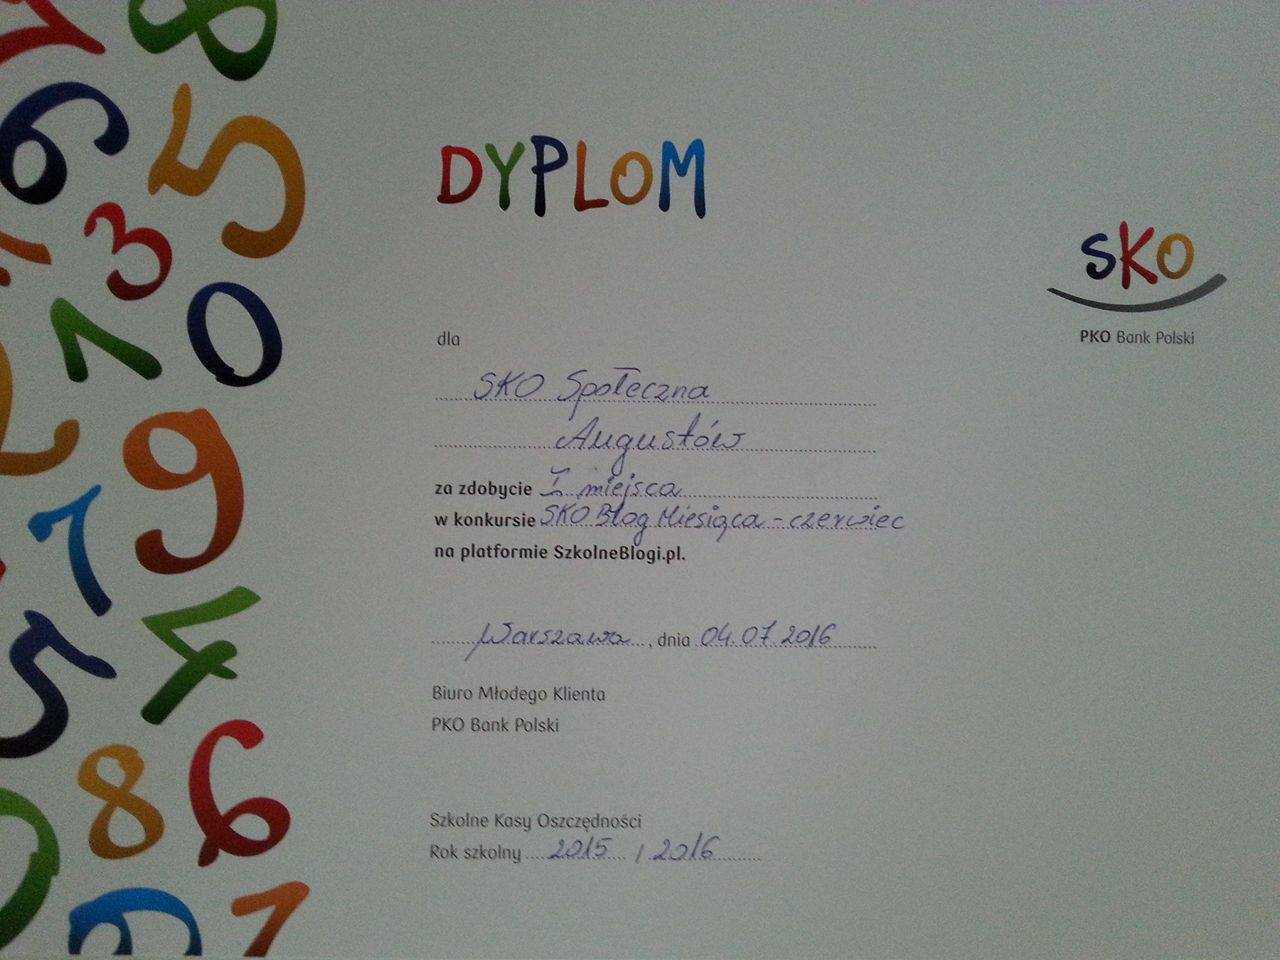 DYPLOM
SKO
PKO Bank Polski
dla
SKO Społeczna
Augustów
za zdobycie I miejsca
w konkursie SKO Blog Miesiąca - czerwiec
na platformie SzkolneBlogi.pl.
Warszawa, dnia 04.07.2016
Biuro Młodego Klienta
PKO Bank Polski
Szkolne Kasy Oszczędności
Rok szkolny 2015 / 2016